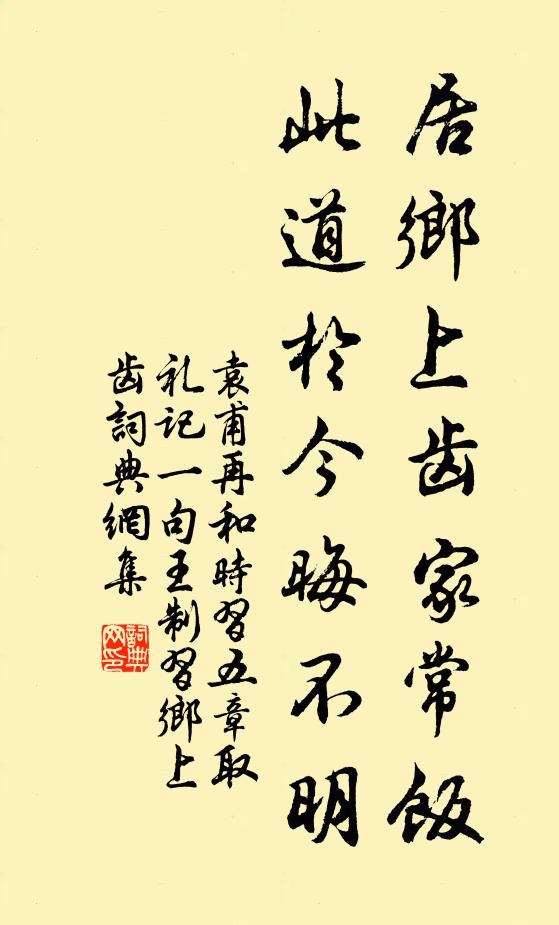 居鄉上齿家常飯
此道於今晦不明
袁甫再和時習五章取
礼記一句王制習鄉上
齿詞典網集
詞典
网印